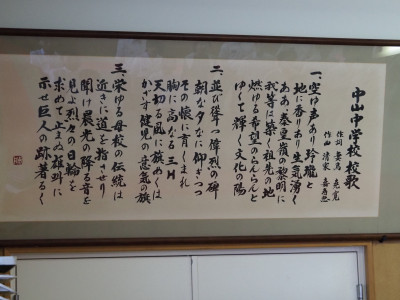 中山中学校校歌
作詞
作曲 清家 嘉寿恵
一、空は声あり玲瓏と
地に香りあり生気湧く
ああ秦皇嶺の黎明に
我等は築く祖先の地
燃ゆる希望のらんらんと
ゆくて輝く文化の陽
二、並び聳つ偉烈の碑
朝な夕なに仰ぎつつ
その懐に育くまれ
胸に高なる三H
天切る風に旗めくは
かざす健児の意気の旗
三、栄ゆる母校の伝統は
近きに道を指させり
聞け晨光の降る音を
見よ烈々の日輪を
求めて止まぬ雄叫に
示せ巨人の跡著るく